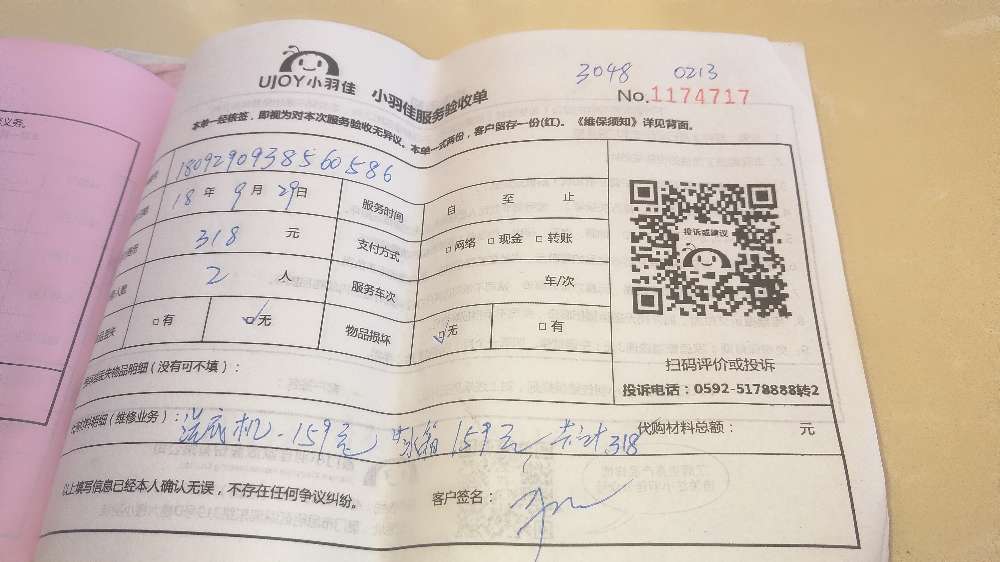 3048 0213
UJOY小羽佳 小羽佳服务验收单 No.1174717
本单一经核签，即视为对本次服务验收无异议。本单一式两份，客户留存一份(红)。《维保须知》详见背面。
1809290938560586
18年9月29日 服务时间 自 至 止
318 元 支付方式 □网络 □现金 □转账
2 人 服务车次 车/次
□有 ☑无 物品损坏 ☑无 □有
投诉或建议
扫码评价或投诉
投诉电话：0592-5178888转2
丢失物品明细（没有可不填）：
料明细（维修业务）： 机-159元 冰箱159元 共计318 代购材料总额： 元
以上填写信息已经本人确认无误，不存在任何争议纠纷。 客户签名：